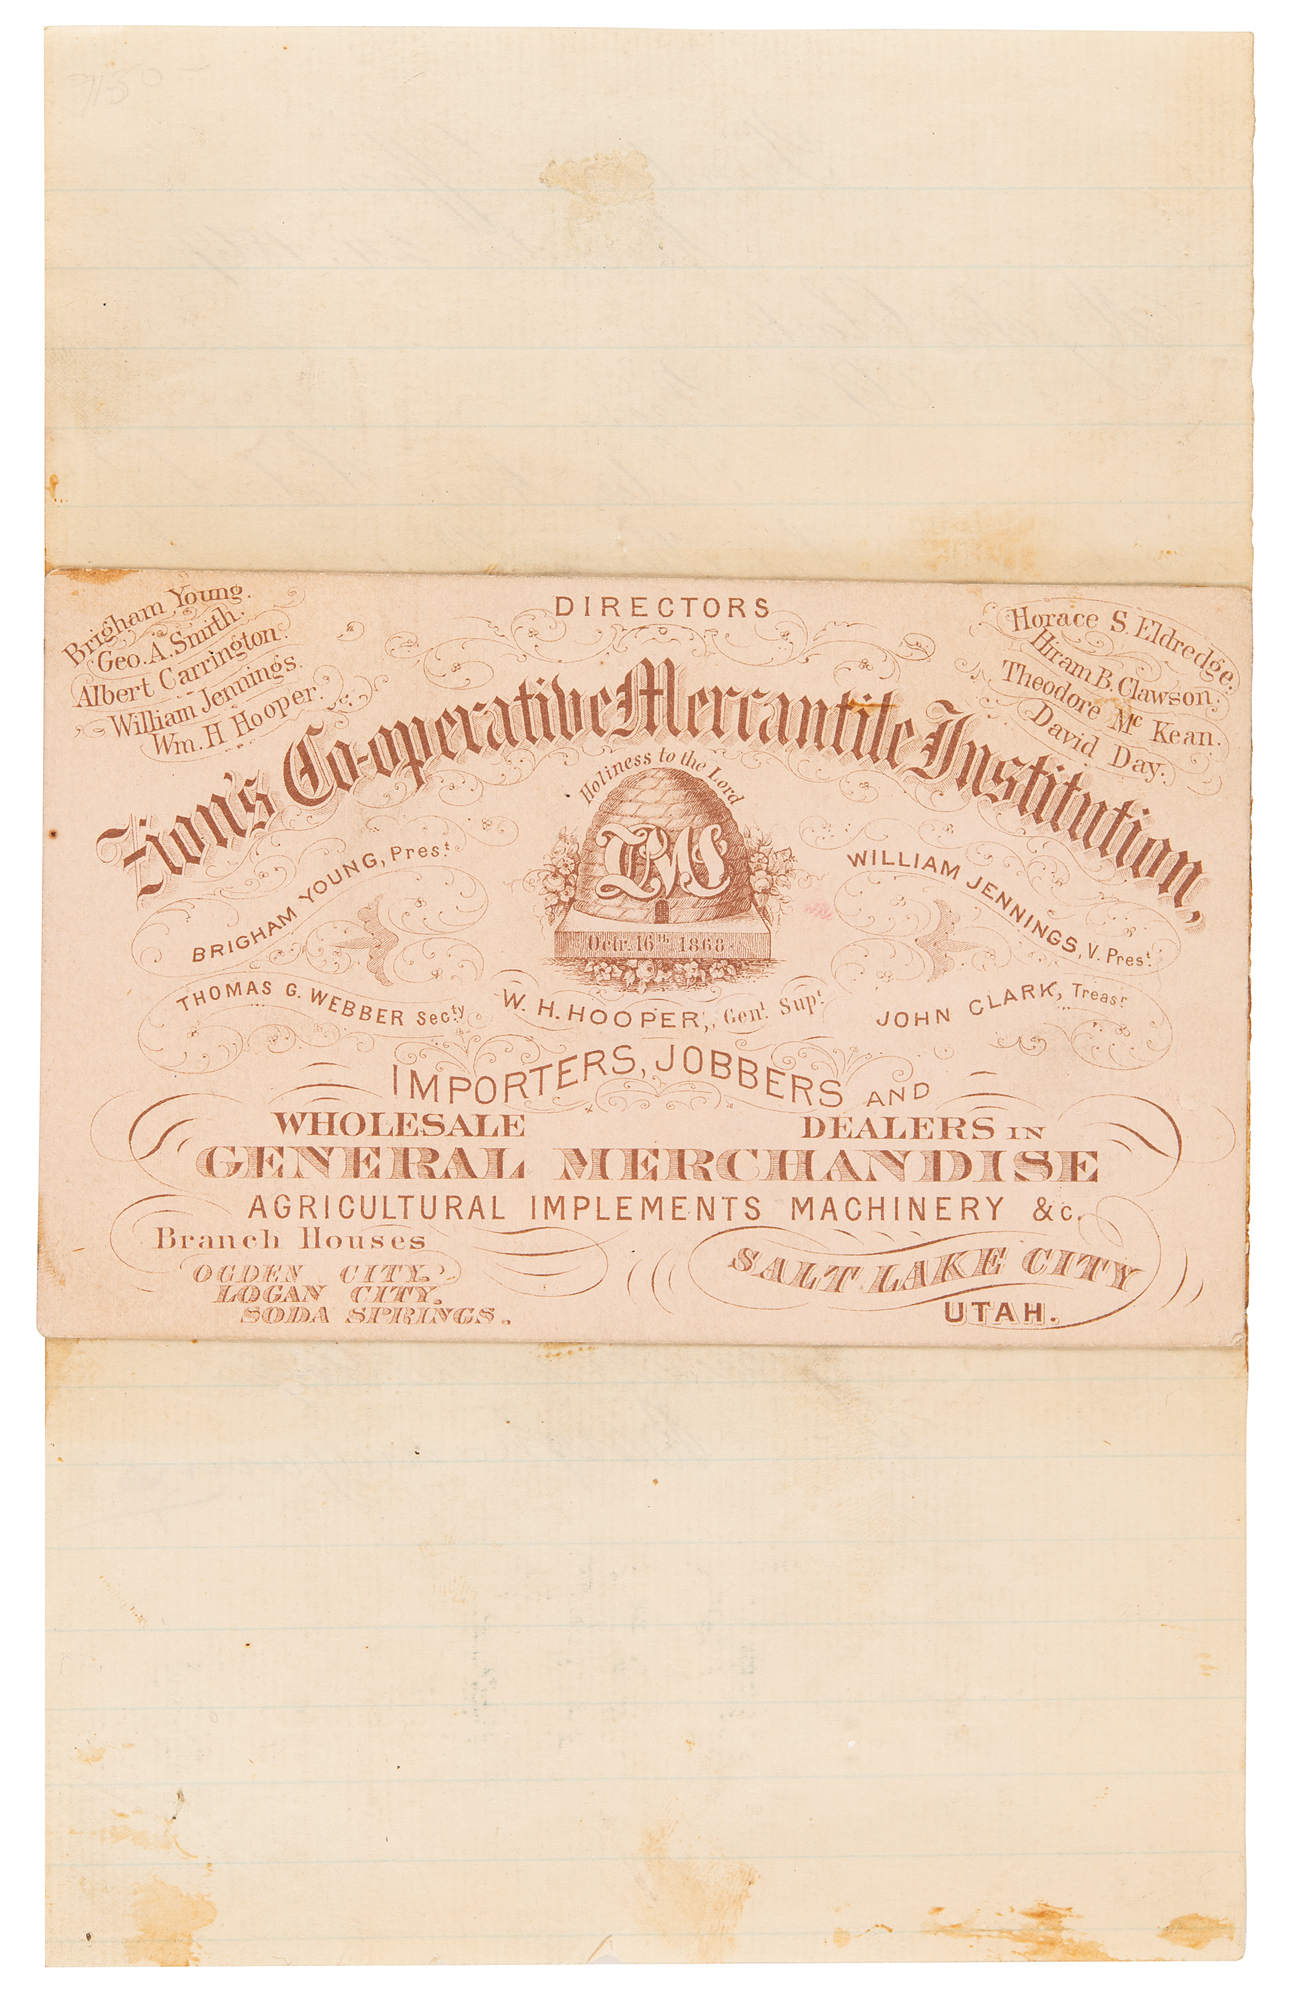 DIRECTORS
Brigham Young.
Geo. A. Smith.
Albert Carrington.
William Jennings.
Wm. H Hooper.
Horace S. Eldredge.
Hiram B. Clawson.
Theodore Mc Kean.
David Day.
Zion's Co-operative Mercantile Institution,
Holiness to the Lord
Octr. 16th 1868.
BRIGHAM YOUNG, Prest.
WILLIAM JENNINGS, V. Prest.
THOMAS G. WEBBER Secty
W. H. HOOPER, Genl. Supt.
JOHN CLARK, Treasr
IMPORTERS, JOBBERS AND
WHOLESALE DEALERS IN
GENERAL MERCHANDISE
AGRICULTURAL IMPLEMENTS MACHINERY &c.
Branch Houses
OGDEN CITY.
LOGAN CITY.
SODA SPRINGS.
SALT LAKE CITY
UTAH.